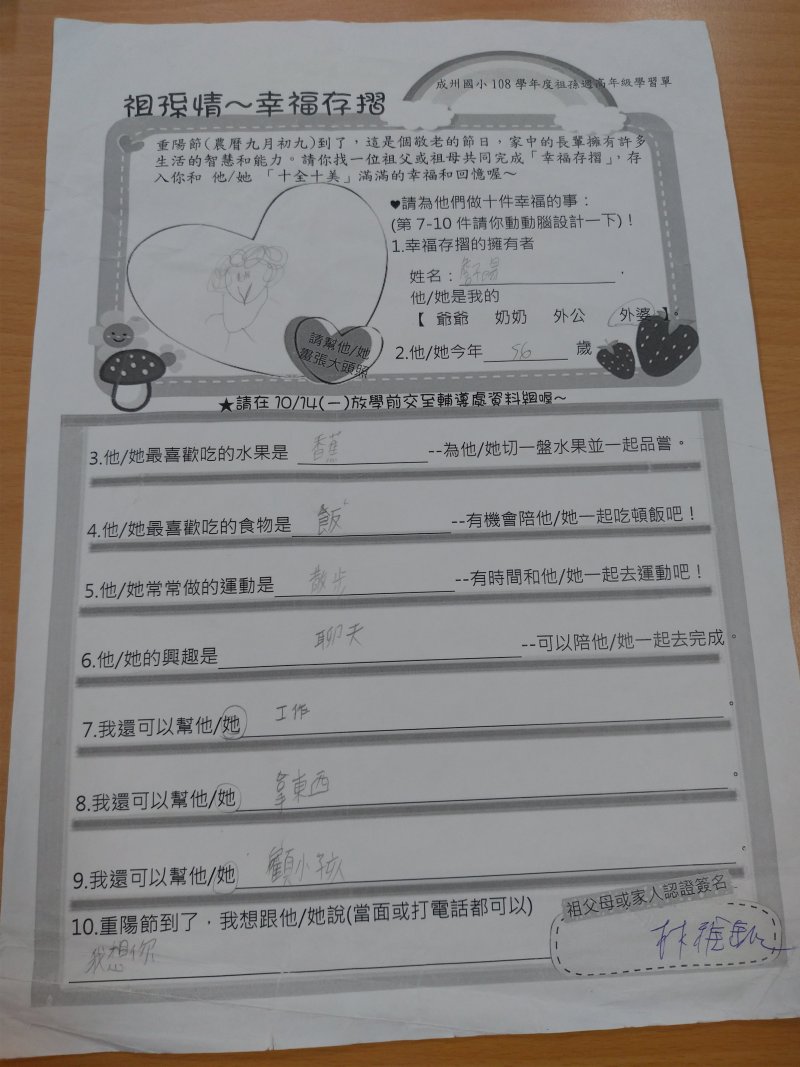 成州國小 108 學年度祖孫週高年級學習單
祖孫情～幸福存摺
重陽節(農曆九月初九)到了，這是個敬老的節日，家中的長輩擁有許多
生活的智慧和能力。請你找一位祖父或祖母共同完成「幸福存摺」，存
入你和 他/她 「十全十美」滿滿的幸福和回憶喔～
♥請為他們做十件幸福的事：
(第 7-10 件請你動動腦設計一下)！
1.幸福存摺的擁有者
姓名：
他/她是我的
【 爺爺 奶奶 外公 外婆 】。
請幫他/她
畫張大頭照
2.他/她今年 56 歲
★請在 10/14(一)放學前交至輔導處資料組喔～
3.他/她最喜歡吃的水果是 香蕉 --為他/她切一盤水果並一起品嘗。
4.他/她最喜歡吃的食物是 飯 --有機會陪他/她一起吃頓飯吧！
5.他/她常常做的運動是 散步 --有時間和他/她一起去運動吧！
6.他/她的興趣是 聊天 --可以陪他/她一起去完成。
7.我還可以幫他/她 工作 。
8.我還可以幫他/她 拿東西 。
9.我還可以幫他/她 顧小孩 。
10.重陽節到了，我想跟他/她說(當面或打電話都可以)
我想你
祖父母或家人認證簽名